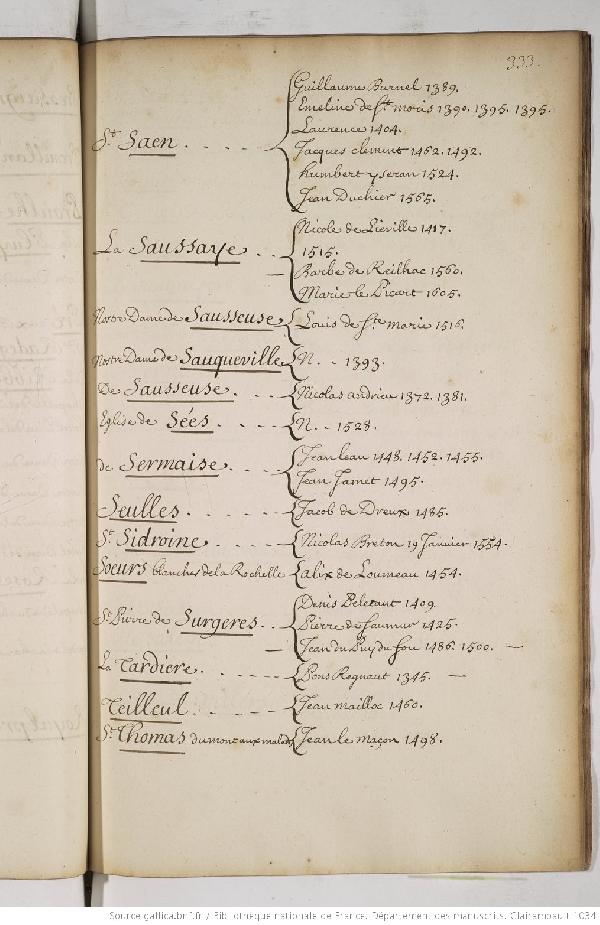 333.
St. Saen
Guillaume Burnel 1389.
Emeline de Ste moris 1390. 1395. 1395.
Laurence 1404.
Jacques clement 1462. 1492.
humbert yseran 1524.
Jean Duchier 1565.
La Saussaye
Nicole de Lieville 1417.
1515.
Barbe de Reilhac 1560.
Marie le Picart 1605.
Nostre Dame de Sausseuse Louis de Ste marie 1516.
Nostre Dame de Sauqueville N. 1393.
De Sausseuse Nicolas andrieu 1372. 1381.
Eglise de Sées N. 1528.
de Sermaise
Jean 1448. 1452. 1455.
Jean Jamet 1495.
Seulles Jacob de Dreux 1485.
St. Sidroine Nicolas Breton 19 Janvier 1554.
Soeurs blanches de la Rochelle alix de Loumeau 1454.
St. Pierre de Surgeres
Denis Peletant 1409
Pierre de Saumur 1425.
Jean du Puy du fou 1486. 1500.
La Tardiere Pons Regnaut 1345.
Teilleul Jean maillac 1460.
St. Thomas du mont aux malades Jean le maçon 1498.
Source gallica.bnf.fr / Bibliothèque nationale de France. Département des manuscrits. Clairambault 1034